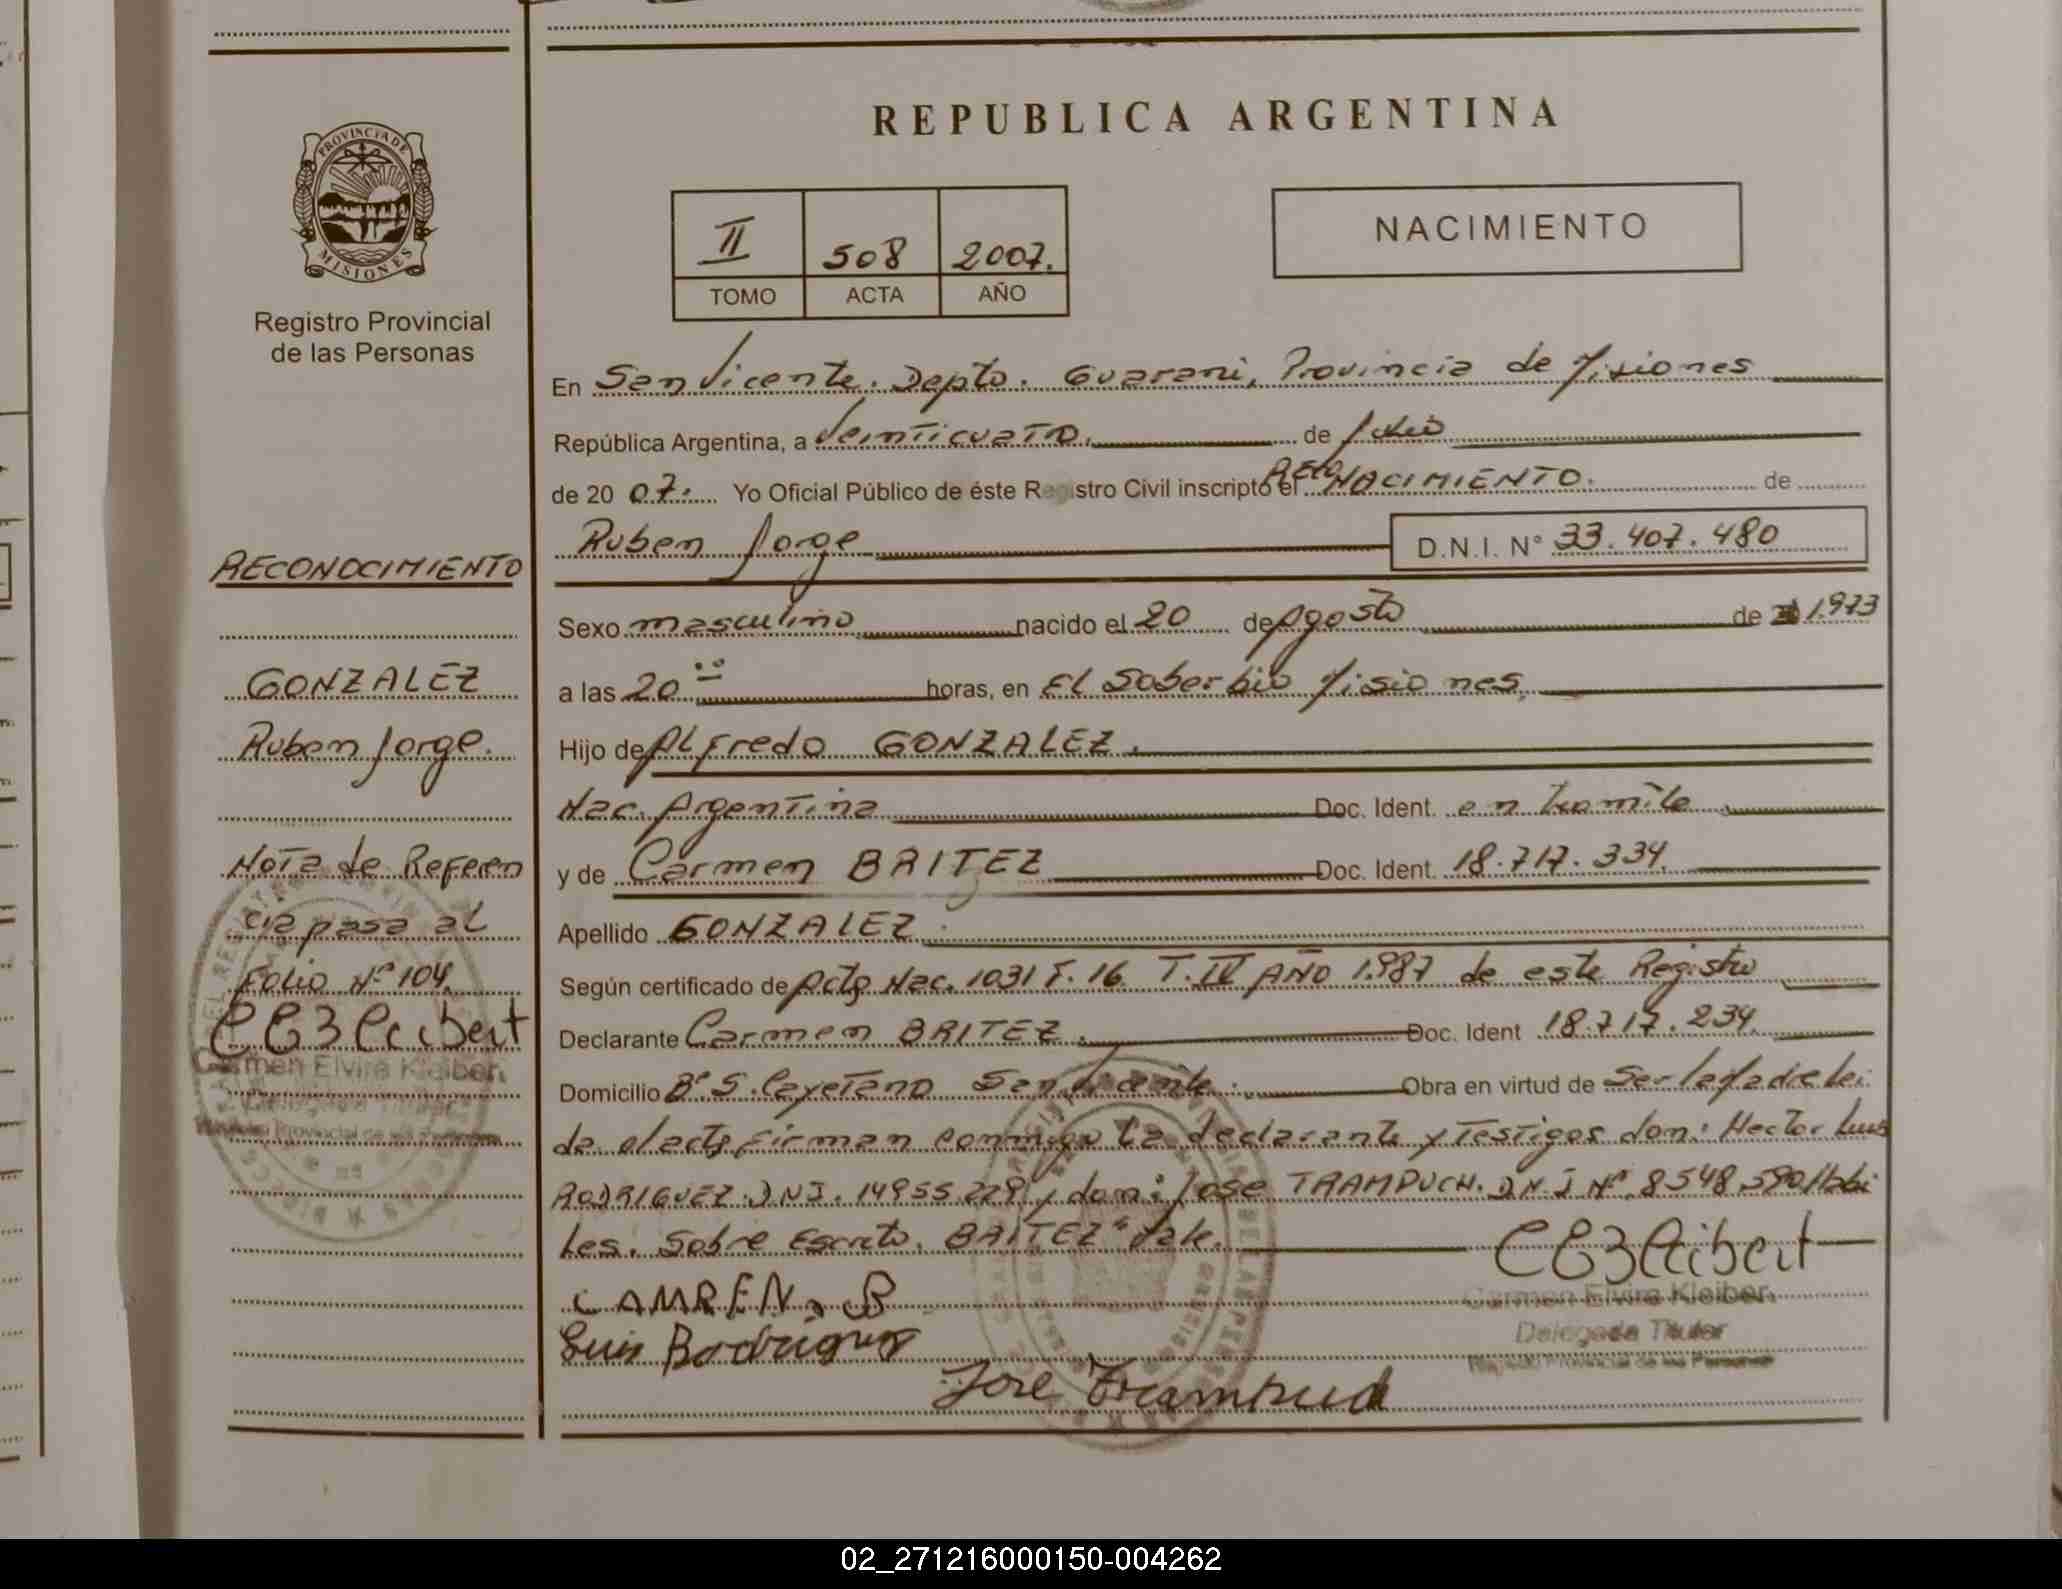 REPUBLICA ARGENTINA
PROVINCIA DE
MISIONES
Registro Provincial
de las Personas
II 508 2007.
TOMO ACTA AÑO
NACIMIENTO
En San Vicente. Depto. Guarani, Provincia de Misiones
República Argentina, a Veinticuatro. de Julio
de 20 07. Yo Oficial Público de éste Registro Civil inscripto el Rcto NACIMIENTO. de
Ruben Jorge D.N.I. N° 33.407.480
Sexo masculino nacido el 20 de Agosto de 1.973
a las 20 horas, en El Soberbio Misiones.
Hijo de Alfredo GONZALEZ.
Nac. Argentina Doc. Ident. en tramite
y de Carmen BRITEZ Doc. Ident. 18.717.334.
Apellido GONZALEZ.
Según certificado de Acta Nac. 1031 F. 16 T. IV AÑO 1.987 de este Registro
Declarante Carmen BRITEZ. Doc. Ident 18.717.234.
Domicilio B° S. Cayetano San Vicente. Obra en virtud de Ser la
da el acta firman conmigo la declarante y Testigos don: Hector Luis
RODRIGUEZ D N I. 14955 229 y don: Jose TRAMPUCH. D N I N° 8548 590 Habi
les. Sobre Escrito. BRITEZ" Vale.
CAMREN. B
Luis Rodriguez
Jose
Carmen Elvira Kleiber
Delegada Titular
Registro Provincial de las Personas
RECONOCIMIENTO
GONZALEZ
Ruben Jorge.
Nota de Referen
cia pasa al
Folio N° 104.
Carmen Elvira Kleiber
Delegada Titular
Registro Provincial de las Personas
02_271216000150-004262